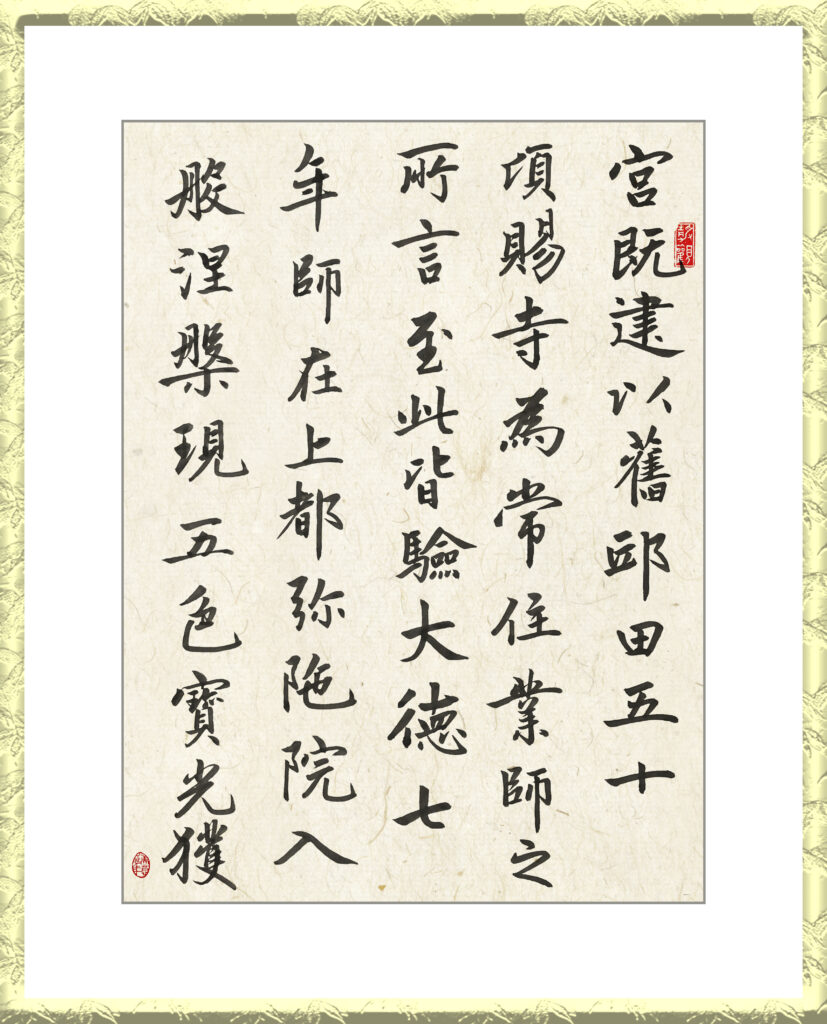 宮既建以舊邱田五十
項賜寺為常住業師之
所言至此皆驗大德七
年師在上都弥陁院入
般涅槃現五色寶光獲